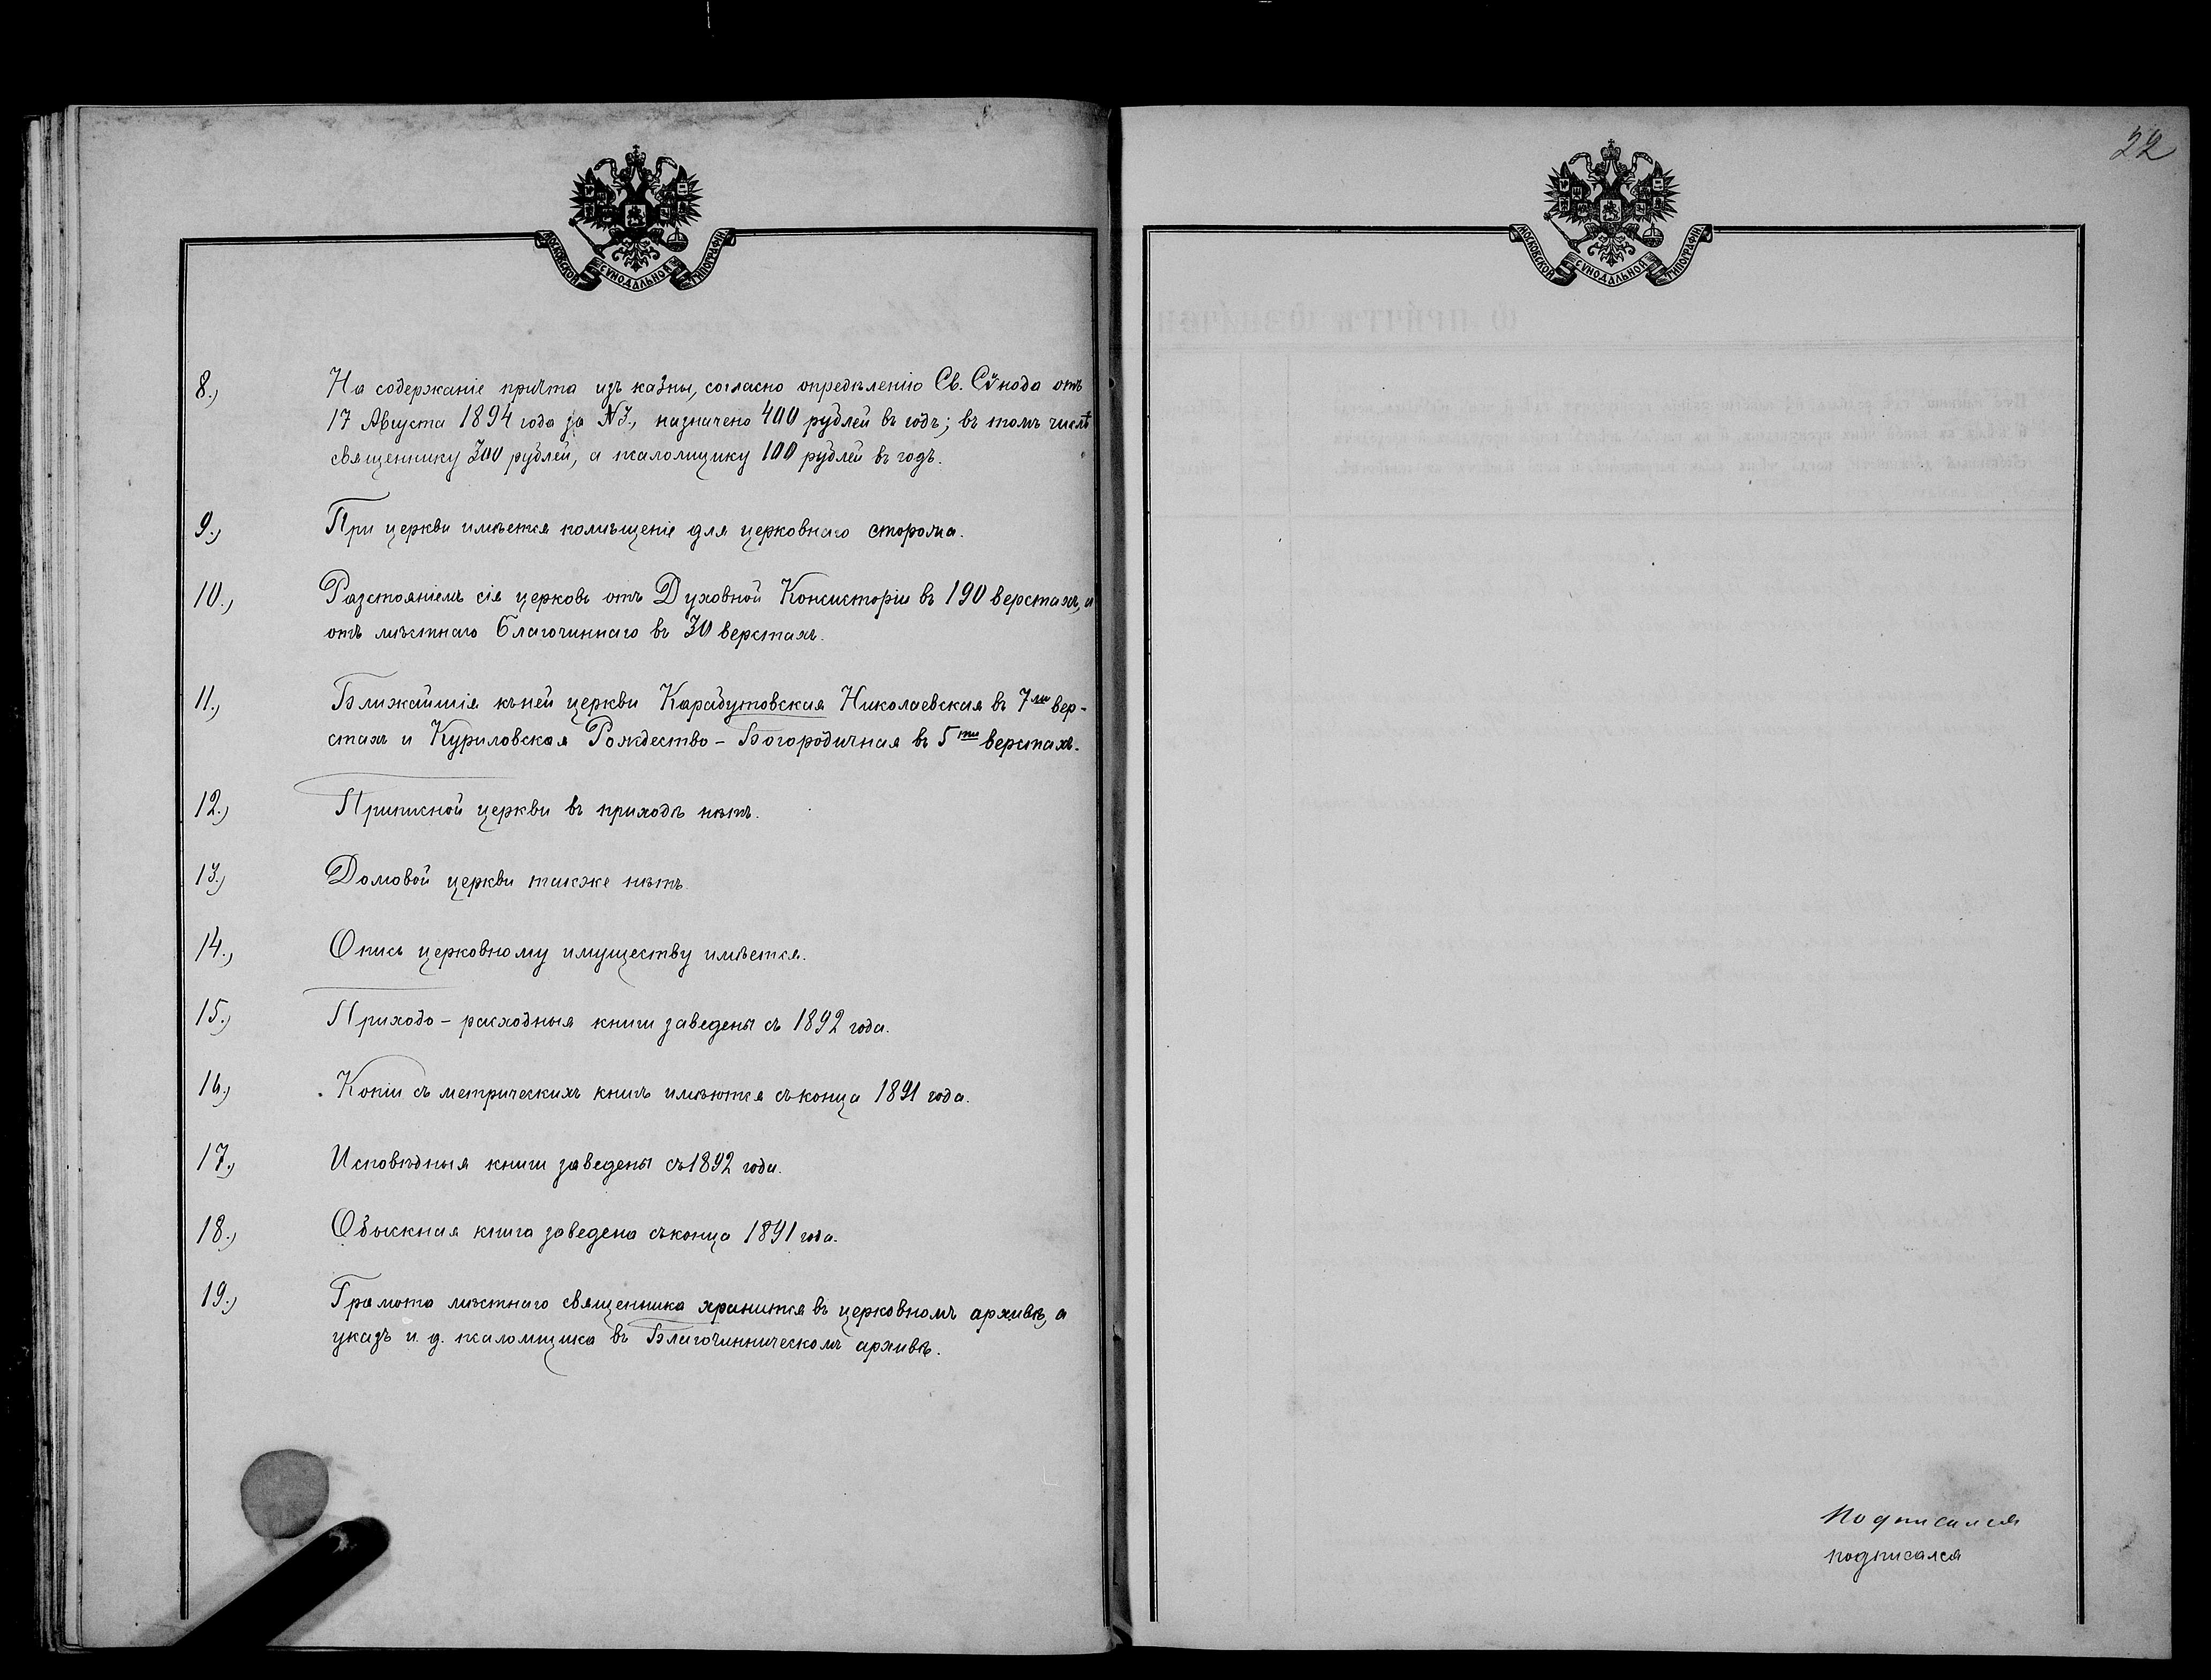 МОСКОВСКОЙ СѴНОДАЛЬНОЙ ТИПОГРАФІИ
8.) На содержаніе причта изъ казны, согласно опредѣленію Св. Сѵнода отъ
17 Августа 1894 года за №3., назначено 400 рублей въ годъ; въ томъ числѣ
священнику 300 рублей, а псаломщику 100 рублей въ годъ.
9.) При церкви имѣется помѣщеніе для церковнаго сторожа.
10.) Разстояніемъ сія церковь отъ Духовной Консисторіи въ 190 верстахъ, а
отъ мѣстнаго Благочиннаго въ 30 верстахъ.
11.) Ближайшія къ ней церкви Карабутовская Николаевская въ 7ми вер-
стахъ и Куриловская Рождество-Богородичная въ 5ти верстахъ.
12.) Приписной церкви въ приходѣ нѣтъ.
13.) Домовой церкви также нѣтъ.
14.) Опись церковному имуществу имѣется.
15.) Приходо-расходныя книги заведены съ 1892 года.
16.) Копіи съ метрическихъ книгъ имѣются съ конца 1891 года.
17.) Исповѣдныя книги заведены съ 1892 года.
18.) Обыскная книга заведена съ конца 1891 года.
19.) Грамота мѣстнаго священника хранится въ церковномъ архивѣ, а
указъ и. д. псаломщика въ Благочинническомъ архивѣ.
22
МОСКОВСКОЙ СѴНОДАЛЬНОЙ ТИПОГРАФІИ
подписался
подписался